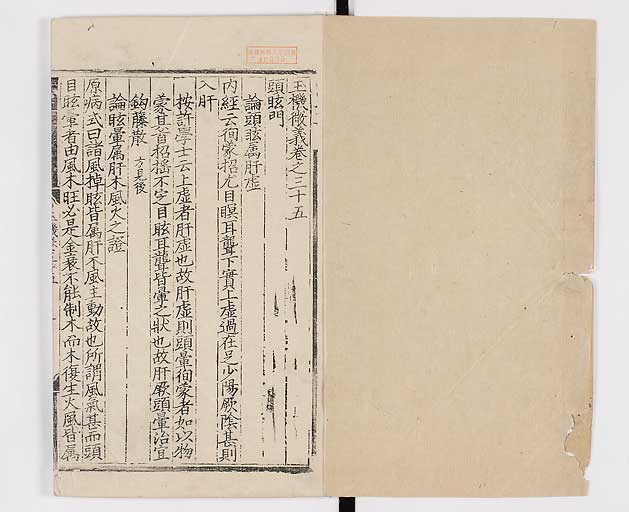 玉機微義卷之三十五
頭眩門
論頭眩屬肝虛
内經云徇蒙招尤目瞑耳聾下實上虛過在足少陽厥陰甚則
入肝
按許學士云上虛者肝虛也故肝虛則頭暈徇蒙者如以物
蒙其首招搖不定目眩耳聾皆暈之狀也故肝厥頭暈治宜
鉤藤散 方見後
論眩暈屬肝木風火之證
原病式曰諸風掉眩皆屬肝木風主動故也所謂風氣甚而頭
目眩暈者由風木旺必是金衰不能制木而木復生火風皆屬